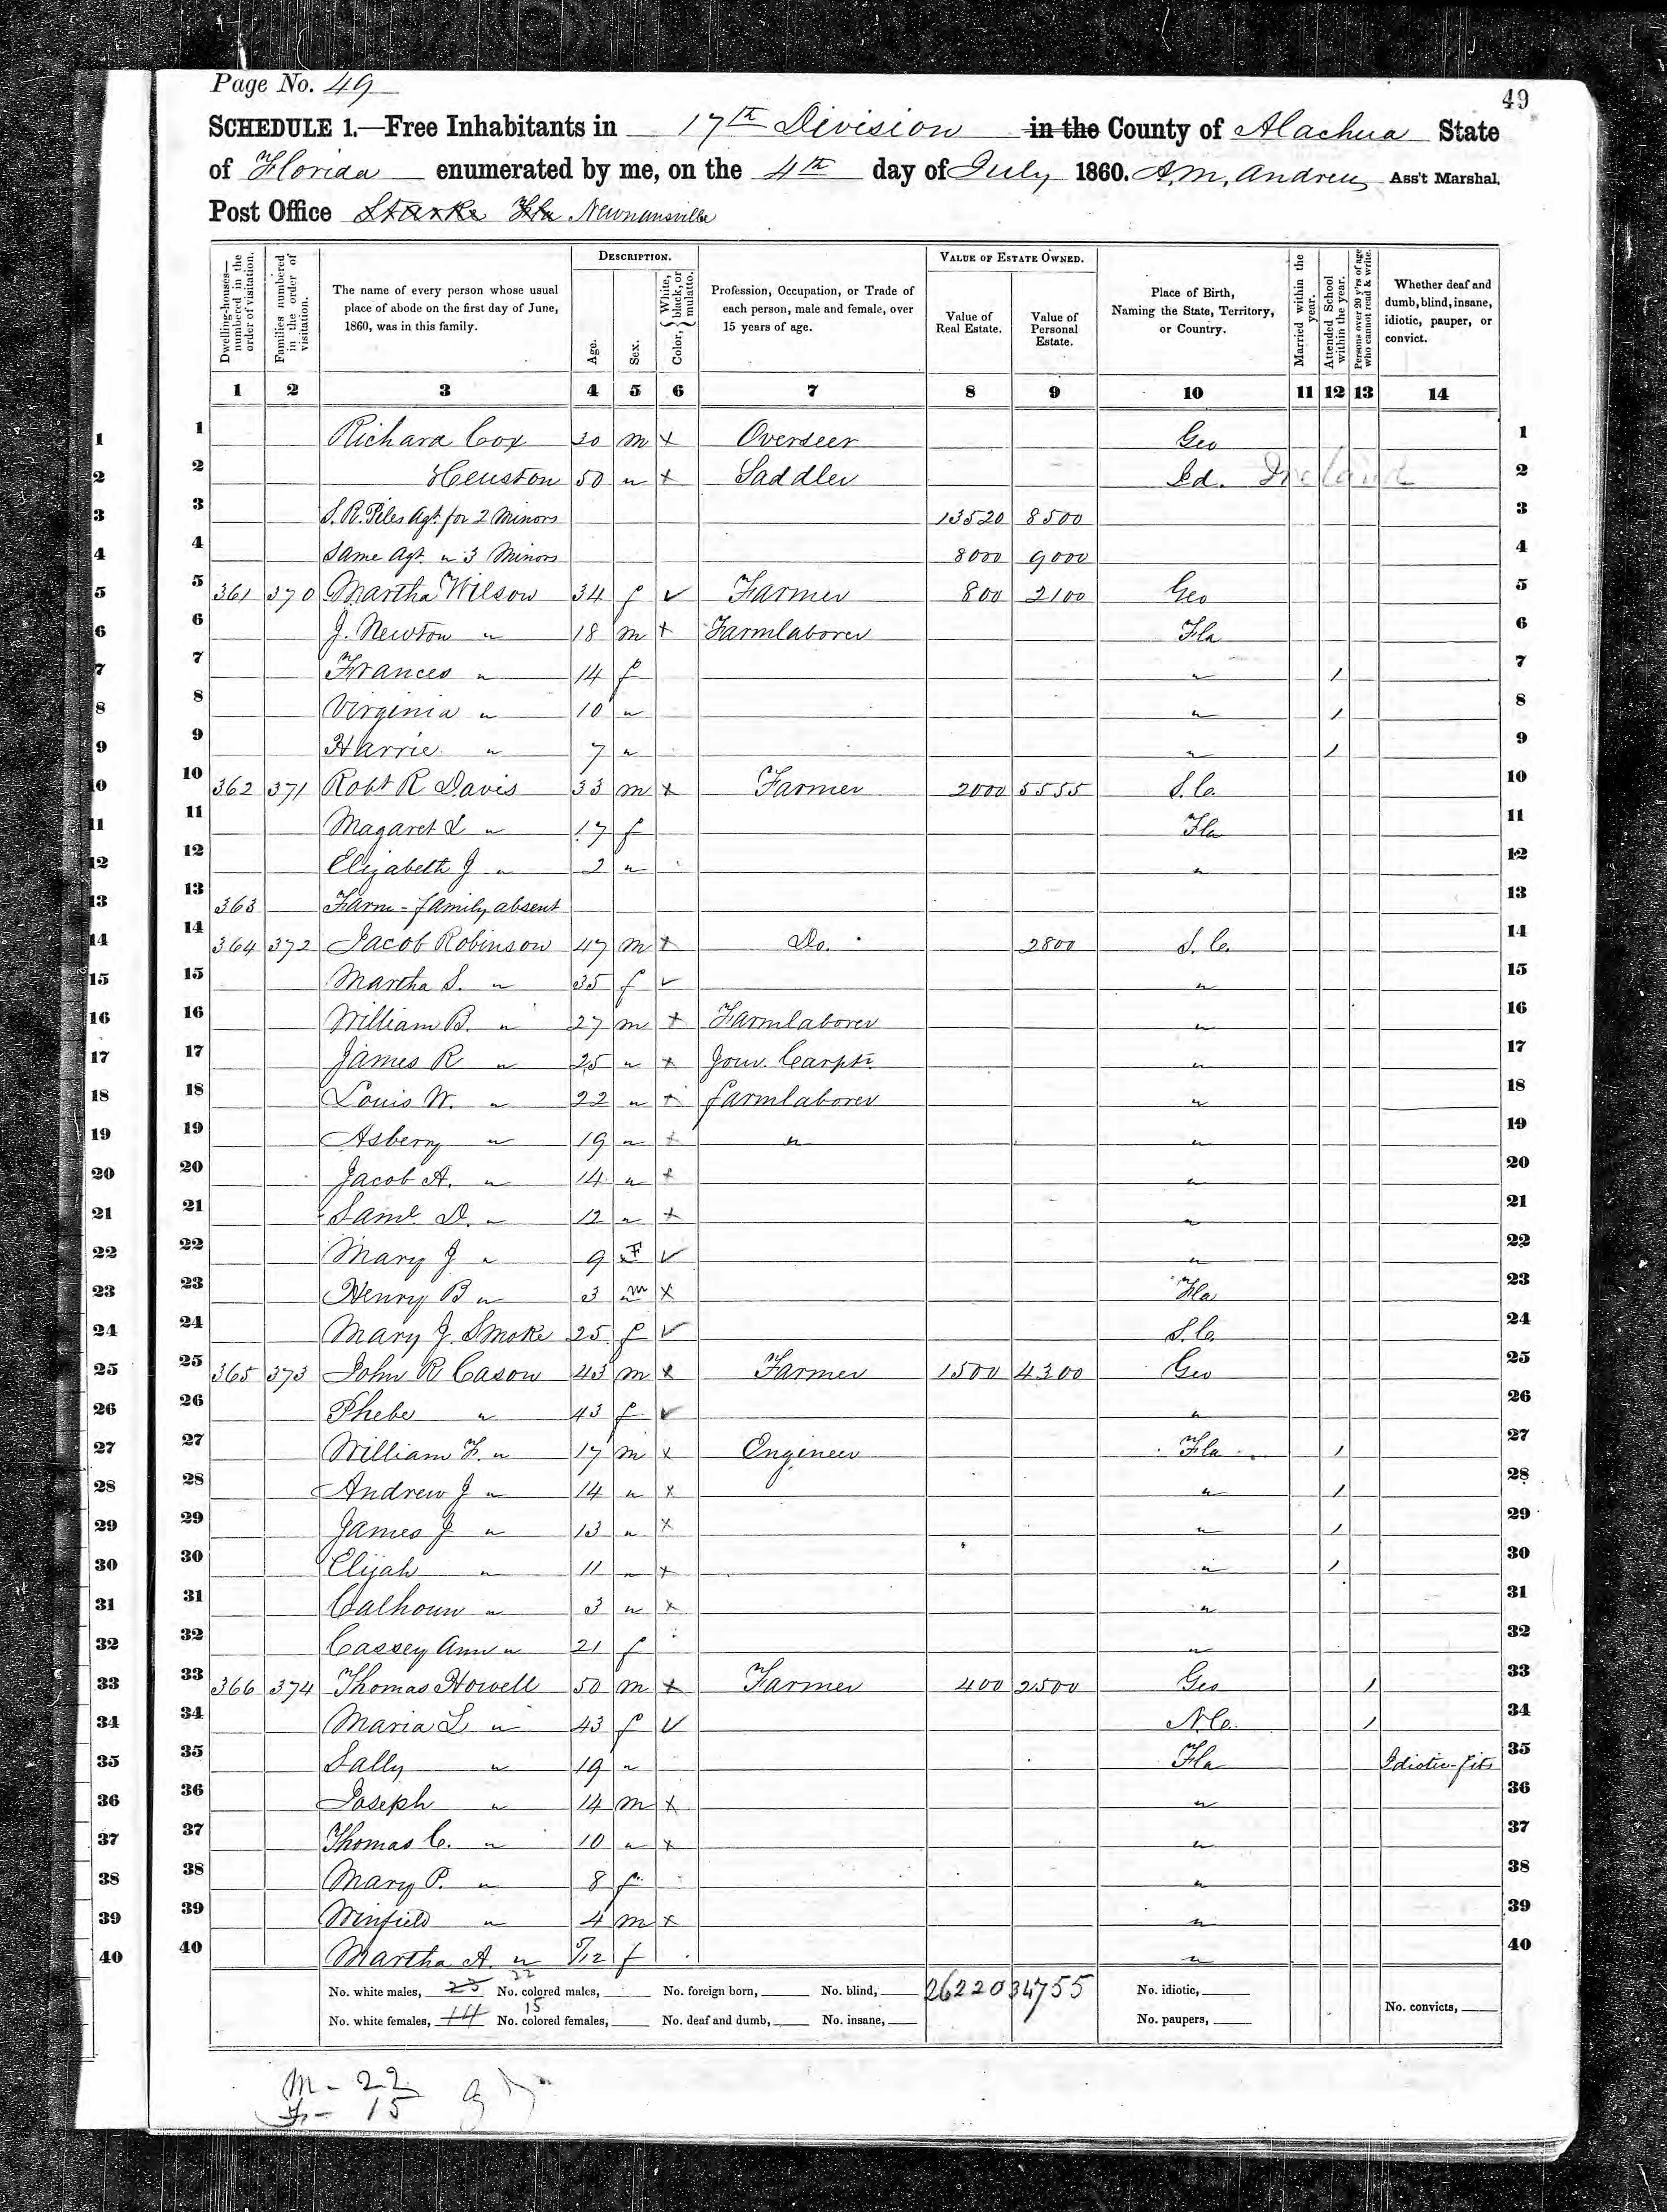 Page No. 49
49
SCHEDULE 1.—Free Inhabitants in 17th Division in the County of Alachua State
of Florida enumerated by me, on the 4th day of July 1860. A. M. Andreu Ass't Marshal.
Post Office Starke Fla Newnansville
Dwelling-houses—numbered in the order of visitation.
Families numbered in the order of visitation.
The name of every person whose usual place of abode on the first day of June, 1860, was in this family.
DESCRIPTION.
Age.
Sex.
Color, { White, black, or mulatto.
Profession, Occupation, or Trade of each person, male and female, over 15 years of age.
VALUE OF ESTATE OWNED.
Value of Real Estate.
Value of Personal Estate.
Place of Birth, Naming the State, Territory, or Country.
Married within the year.
Attended School within the year.
Persons over 20 y'rs of age who cannot read & write.
Whether deaf and dumb, blind, insane, idiotic, pauper, or convict.
1 2 3 4 5 6 7 8 9 10 11 12 13 14
1 1 Richard Cox 30 m x Overseer Geo 1
2 2 Heuston 50 " x Saddler Id. Ireland 2
3 3 S. R. Piles Agt. for 2 Minors 13520 8500 3
4 4 Same Agt. " 3 Minors 8000 9000 4
5 5 361 370 Martha Wilson 34 f ✓ Farmer 800 2100 Geo 5
6 6 J. Newton " 18 m x Farmlaborer Fla 6
7 7 Frances " 14 f " / 7
8 8 Virginia " 10 " " / 8
9 9 Harrie " 7 " " / 9
10 10 362 371 Robt R Davis 33 m x Farmer 2000 5555 S. C. 10
11 11 Magaret L " 17 f Fla 11
12 12 Elizabeth J " 2 " " 12
13 13 363 Farm - family absent 13
14 14 364 372 Jacob Robinson 47 m x Do. 2800 S. C. 14
15 15 Martha S. " 35 f ✓ " 15
16 16 William B. " 27 m x Farmlaborer " 16
17 17 James R " 25 " x Jour. Carptr. " 17
18 18 Louis W. " 22 " x farmlaborer " 18
19 19 Asberry " 19 " x " " 19
20 20 Jacob A. " 14 " x " 20
21 21 Saml. D. " 12 " x " 21
22 22 Mary J " 9 F ✓ " 22
23 23 Henry B " 3 m x Fla 23
24 24 Mary J. Smoke 25 f ✓ S. C. 24
25 25 365 373 John R Cason 43 m x Farmer 1500 4300 Geo 25
26 26 Phebe " 43 f ✓ " 26
27 27 William F. " 17 m x Engineer Fla / 27
28 28 Andrew J " 14 " x " / 28
29 29 James J " 13 " x " / 29
30 30 Elijah " 11 " x " / 30
31 31 Calhoun " 3 " x " 31
32 32 Cassey Ann " 21 f " 32
33 33 366 374 Thomas Howell 50 m x Farmer 400 2500 Geo / 33
34 34 Maria L " 43 f ✓ N. C. / 34
35 35 Sally " 19 " Fla Idiotic-fits 35
36 36 Joseph " 14 m x " 36
37 37 Thomas C. " 10 " x " 37
38 38 Mary P. " 8 f " 38
39 39 Winfield " 4 m x " 39
40 40 Martha A. " /12 f " 40
No. white males, 23 22 No. colored males, No. foreign born, No. blind, 26220 34755 No. idiotic,
No. white females, 14 15 No. colored females, No. deaf and dumb, No. insane, No. paupers, No. convicts,
M - 22
F - 15